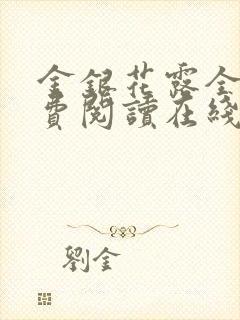 金銀花露全
費閱讀在綫
劉金